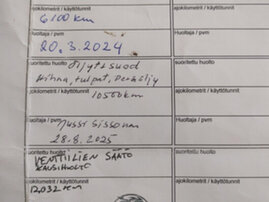 ajokilometrit / käyttötunnit
6100 km
ajokilometrit / käyttötunnit
Huoltaja / pvm
20.3.2024
Huoltaja / pvm
suoritettu huolto Öljyt+suod
suoritettu huolto
Hihna, tulpat, Peräöljy
ajokilometrit / käyttötunnit
10500km
ajokilometrit / käyttötunnit
Huoltaja / pvm
Jussi Sissonen
Huoltaja / pvm
28.8.2025
suoritettu huolto
VENTTIILIEN SÄÄTÖ
suoritettu huolto
KAUSIHUOLTO
ajokilometrit / käyttötunnit
12,032 km
ajokilometrit / käyttötunnit